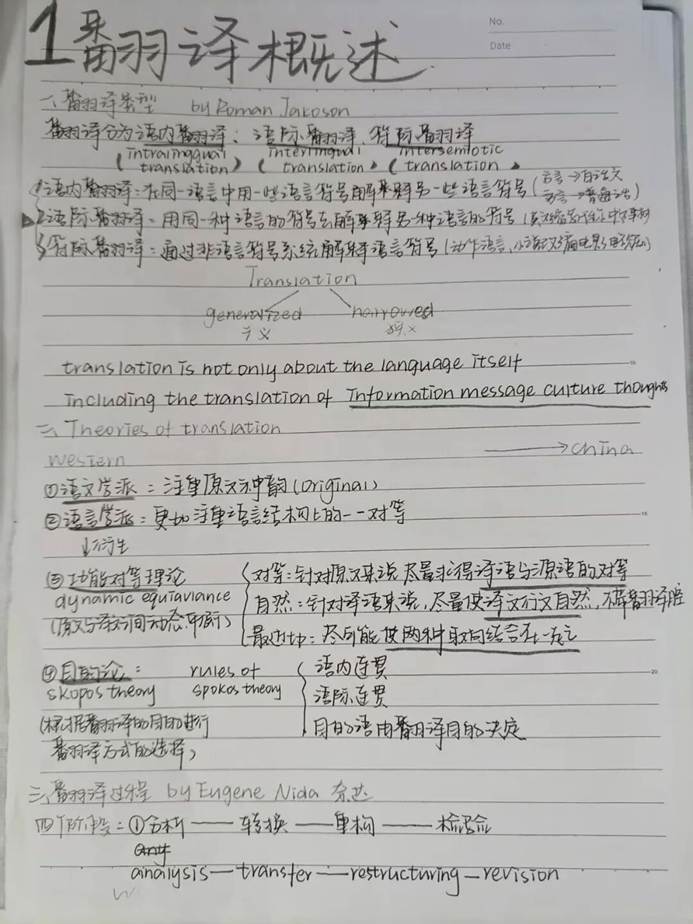 No.
Date
1翻译概述
一、翻译类型 by Roman Jakoson
翻译分为语内翻译、语际翻译、符际翻译
(intralingual translation) (interlingual translation) (intersemotic translation)
1 语内翻译：在同一语言中用一些语言符号解释另一些语言符号(古言→白话文 方言→普通话)
2 语际翻译：用同一种语言的符号去解释另一种语言的符号
3 符际翻译：通过非语言符号系统解释语言符号(动作语言,小说改编电影
Translation
generalized narrowed
广义 狭义
translation is not only about the language itself
including the translation of Information message culture thoughts
二、Theories of translation
western → china
①语文学派：注重原文神韵(original)
②语言学派：更加注重语言结构上的一一对等
↓衍生
③功能对等理论
dynamic equiavance
(原文与译文间动态平衡)
对等：针对原文来说 尽量求得译语与源语的对等
自然：针对译语来说,尽量使译文行文自然,不带翻译腔
最近切：尽可能使两种取向结合在一起
④目的论：
skopos theory
(根据翻译的目的进行
翻译方式的选择)
rules of
spokos theory
语内连贯
语际连贯
目的语由翻译目的决定
三、翻译过程 by Eugene Nida 奈达
四个阶段：①分析——转换——重构——检验
analysis—transfer—restructuring—revision